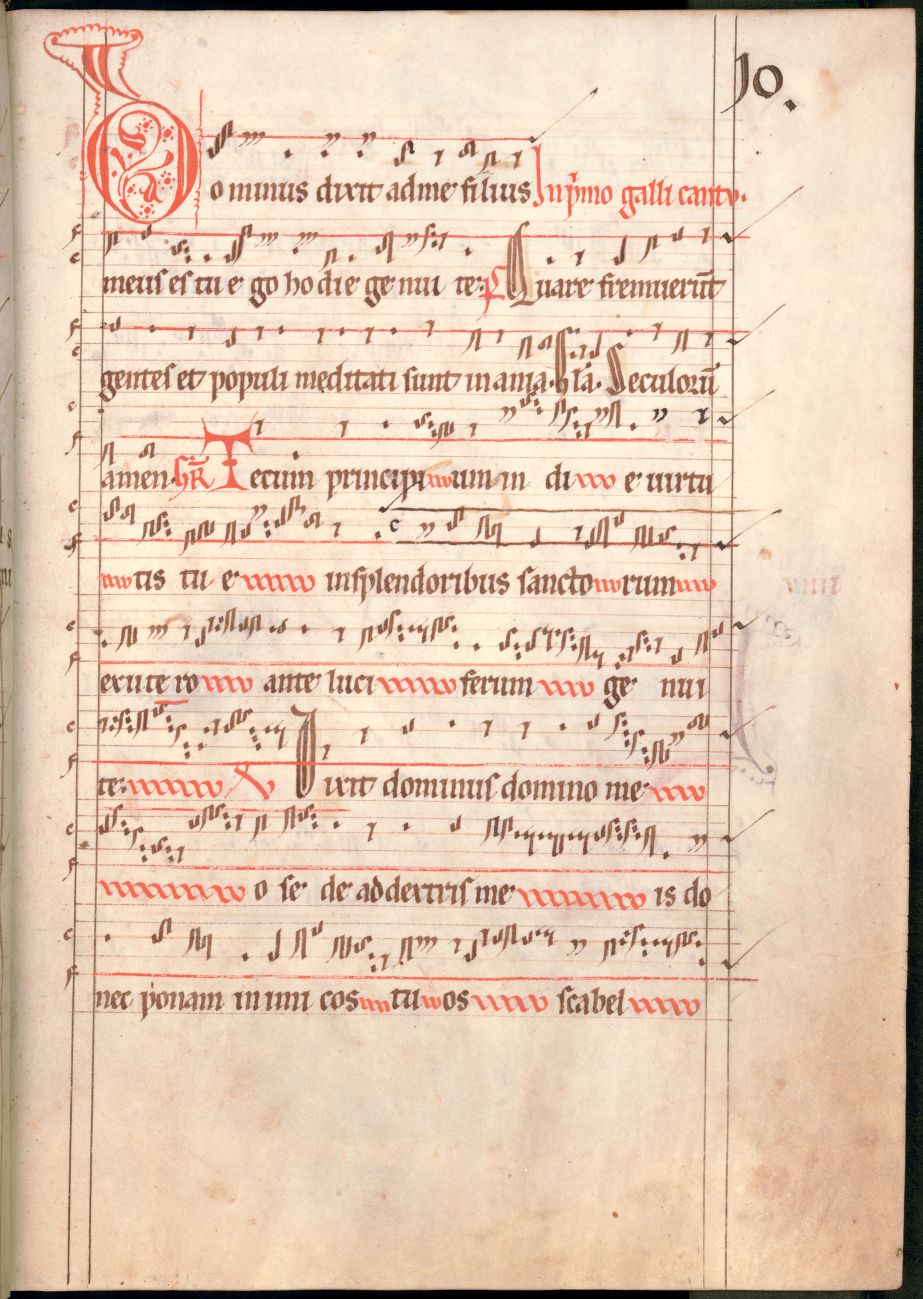 10.
Dominus dixit ad me filius In p̄mo galli cantu.
meus es tu e go ho di e ge nui te: P̄ Quare fremuerūt
gentes et populi meditati sunt inania. Gl̄a. Seculorū
amen. GR̄ Tecum principi um in di e uirtu
tis tu e insplendoribus sancto rum
exute ro ante luci ferum ge nui
te: V Dixit dominus domino me
o se de ad dextris me is do
nec ponam inimi cos tu os scabel